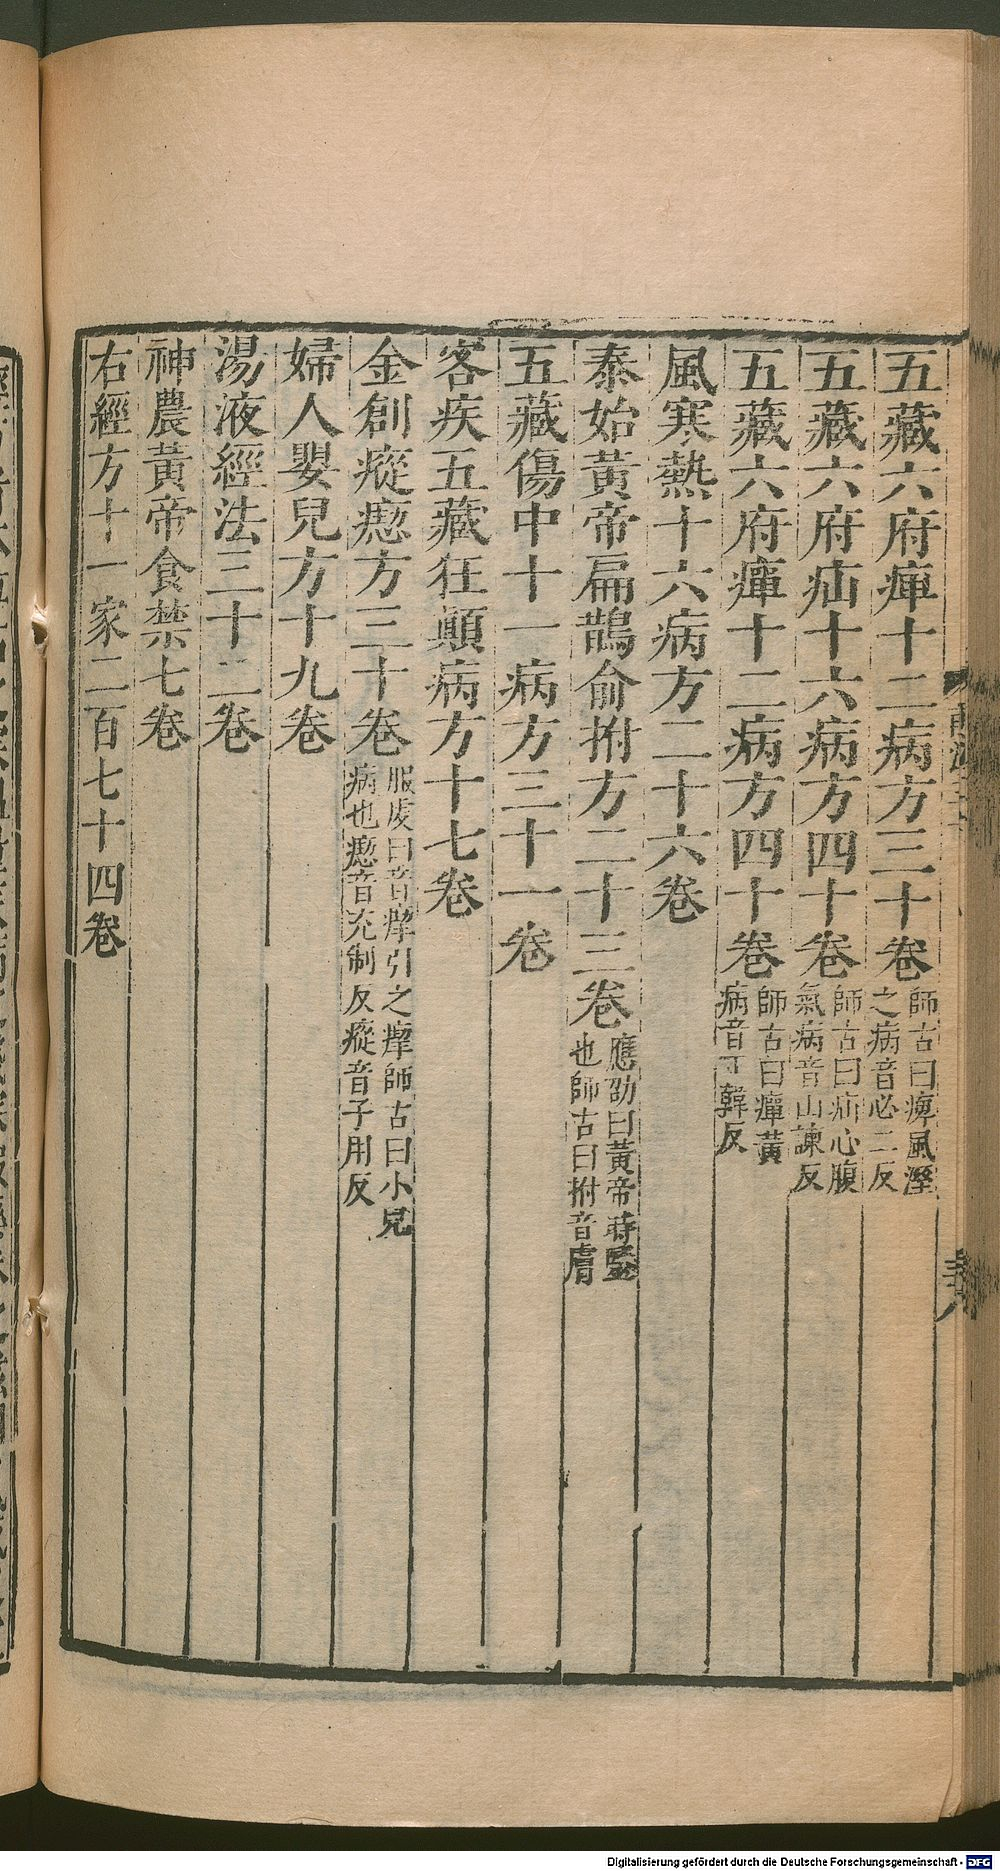 五藏六府痺十二病方三十卷師古曰痺風溼之病音必二反
五藏六府疝十六病方四十卷師古曰疝心腹氣病音山諫反
五藏六府癉十二病方四十卷師古曰癉黃病音丁韓反
風寒熱十六病方二十六卷
泰始黃帝扁鵲俞拊方二十三卷應劭曰黃帝時醫也師古曰拊音膚
五藏傷中十一病方三十一卷
客疾五藏狂顛病方十七卷
金創瘲瘛方三十卷服虔曰音瘛引之瘛師古曰小兒病也瘛音充制反瘲音子用反
婦人嬰兒方十九卷
湯液經法三十二卷
神農黃帝食禁七卷
右經方十一家二百七十四卷
Digitalisierung gefördert durch die Deutsche Forschungsgemeinschaft - DFG